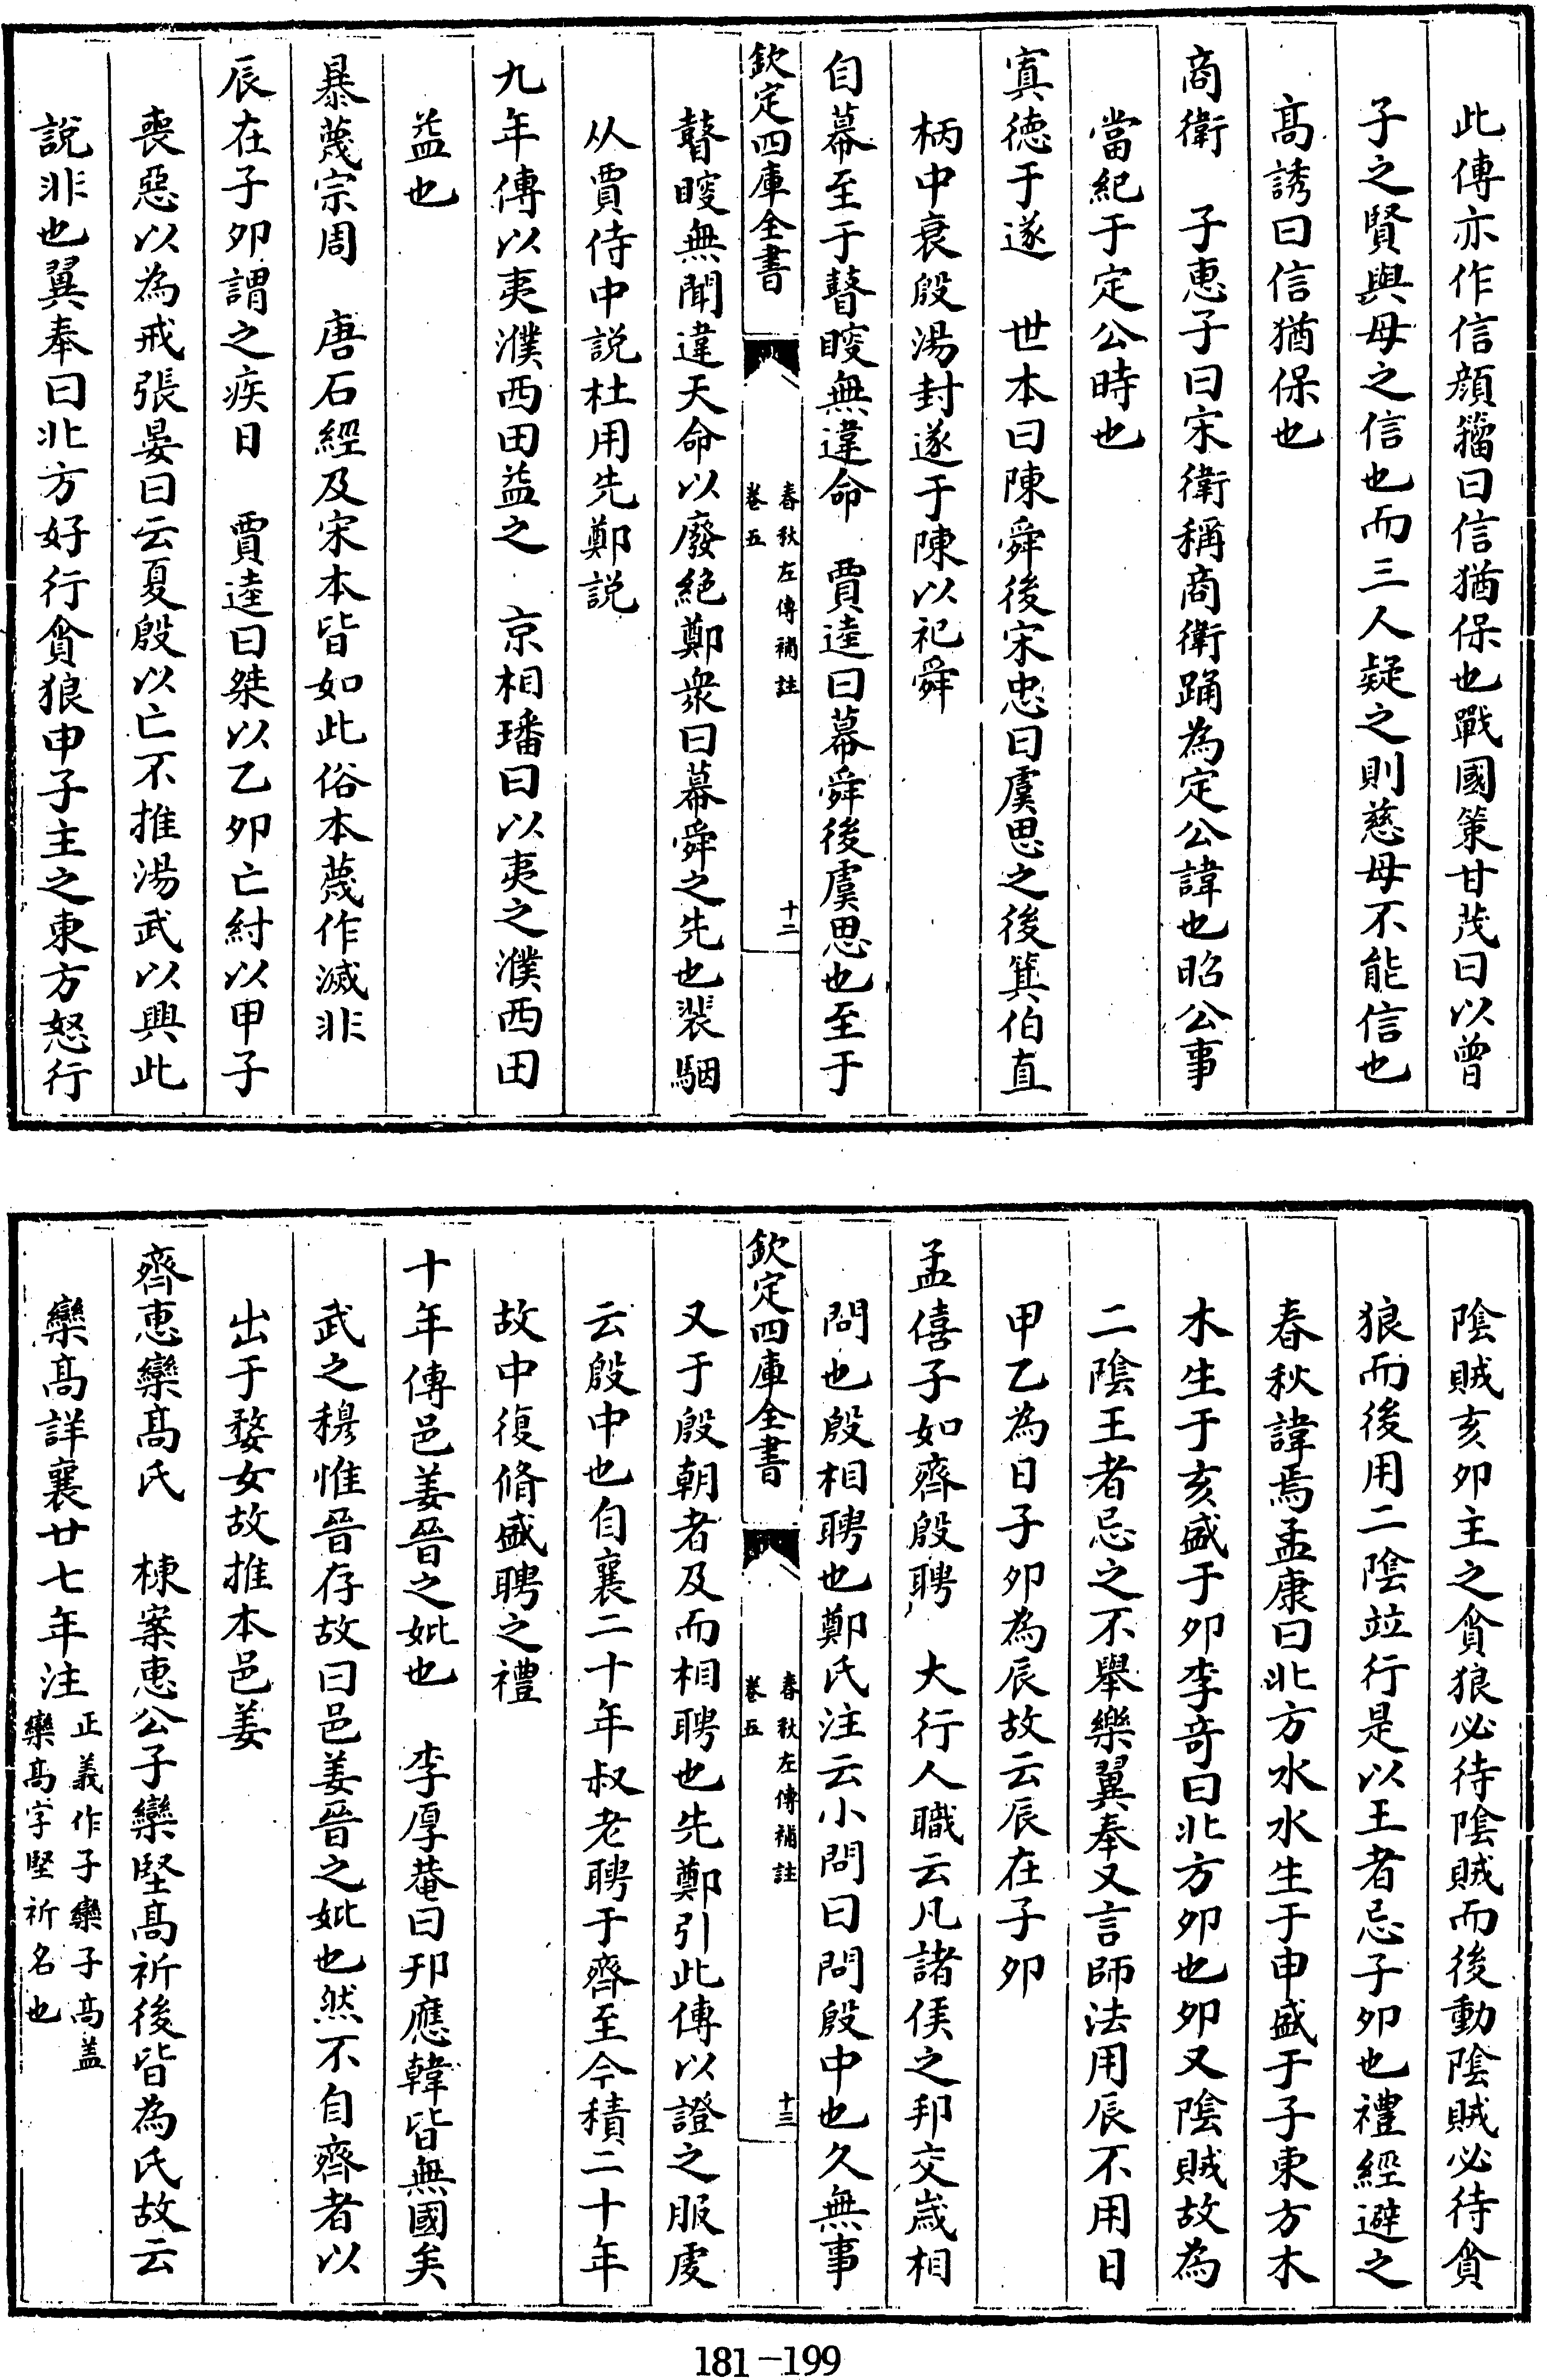 此傳亦作信顔籀曰信猶保也戰國策甘茂曰以曾
子之賢與母之信也而三人疑之則慈母不能信也
髙誘曰信猶保也
商衛　子惠子曰宋衛稱商衛踊為定公諱也昭公事
當紀于定公時也
寘徳于遂　世本曰陳舜後宋忠曰虞思之後箕伯直
柄中衰殷湯封遂于陳以祀舜
自幕至于瞽瞍無違命　賈逵曰幕舜後虞思也至于
欽定四庫全書
春秋左傳補註
卷五
十二
瞽瞍無聞違天命以廢絶鄭衆曰幕舜之先也裴駰
从賈侍中説杜用先鄭説
九年傳以夷濮西田益之　京相璠曰以夷之濮西田
益也
暴蔑宗周　唐石經及宋本皆如此俗本蔑作滅非
辰在子夘謂之疾日　賈逵曰桀以乙夘亡紂以甲子
喪惡以為戒張晏曰云夏殷以亡不推湯武以興此
說非也翼奉曰北方好行貪狼申子主之東方怒行
陰賊亥夘主之貪狼必待陰賊而後動陰賊必待貪
狼而後用二陰竝行是以王者忌子夘也禮經避之
春秋諱焉孟康曰北方水水生于申盛于子東方木
木生于亥盛于夘李竒曰北方夘也夘又陰賊故為
二陰王者忌之不舉樂翼奉又言師法用辰不用日
甲乙為日子夘為辰故云辰在子夘
孟僖子如齊殷聘　大行人職云凡諸侯之邦交歲相
問也殷相聘也鄭氏注云小問曰問殷中也久無事
欽定四庫全書
春秋左傳補註
卷五
十三
又于殷朝者及而相聘也先鄭引此傳以證之服虔
云殷中也自襄二十年叔老聘于齊至今積二十年
故中復脩盛聘之禮
十年傳邑姜晉之妣也　李厚菴曰邘應韓皆無國矣
武之穆惟晉存故曰邑姜晉之妣也然不自齊者以
出于婺女故推本邑姜
齊惠欒髙氏　棟案惠公子欒堅髙祈後皆為氏故云
欒髙詳襄廿七年注正義作子欒子髙盖
欒髙字堅祈名也
181-199